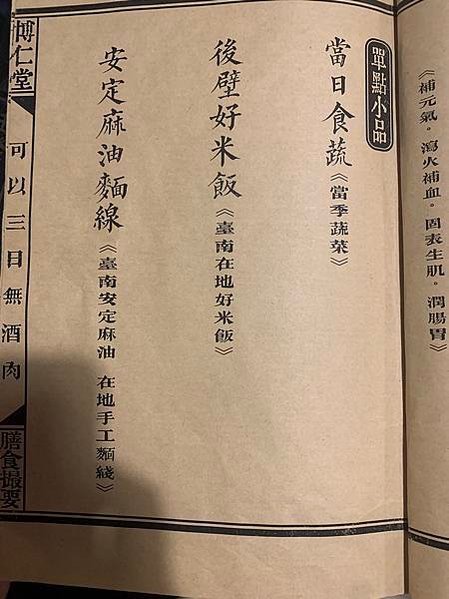 《補元氣。瀉火補血。固表生肌。潤腸胃》
單點小品
當日食蔬《當季蔬菜》
後壁好米飯《臺南在地好米飯》
安定麻油麵線《臺南安定麻油 在地手工麵綫》
博仁堂
可以三日無酒肉
膳食撮要